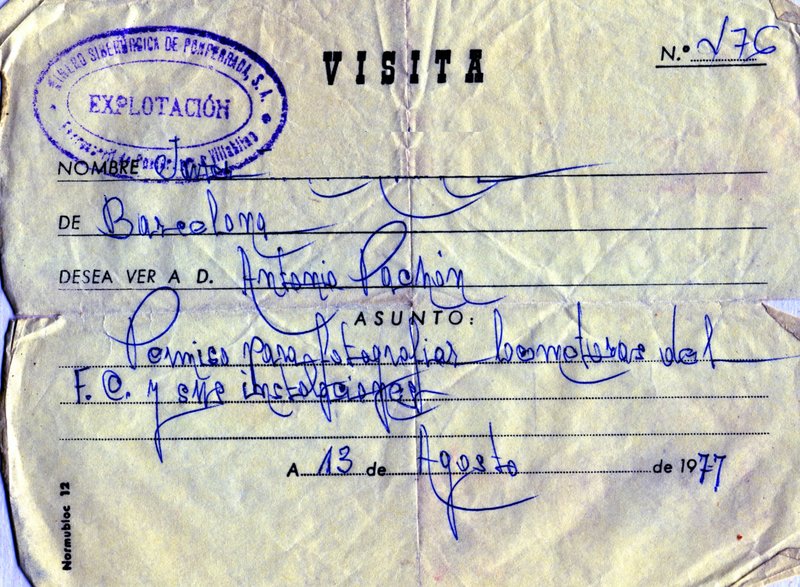 MINERO SIDERÚRGICA DE PONFERRADA, S. A.
EXPLOTACIÓN
Villablino
VISITA
N.º 176
NOMBRE
DE Barcelona
DESEA VER A D. Antonio Pachón
ASUNTO:
Permiso para fotografiar locomotoras del
F. C. y sus instalaciones
A 13 de Agosto de 1977
Normubloc 12